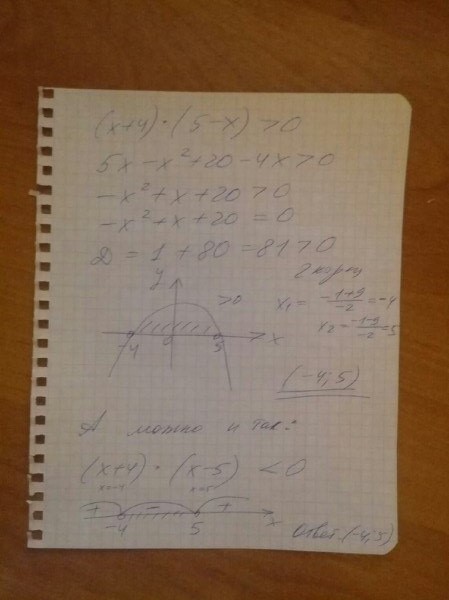 (x+4)·(5-x)>0
5x-x²+20-4x>0
-x²+x+20>0
-x²+x+20=0
D=1+80=81>0
2 корня
x₁=(-1+9)/(-2)=-4
x₂=(-1-9)/(-2)=5
y
>0
-4 0 5 x
(-4;5)
А можно и так:
(x+4)·(x-5)<0
x=-4 x=5
+ - +
-4 5 x
Ответ:(-4;5)